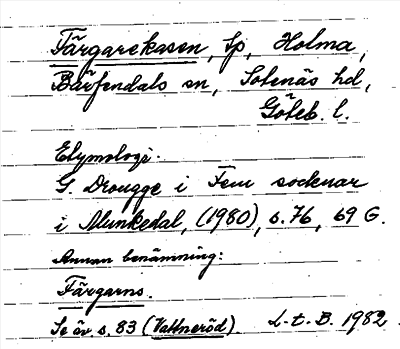 Färgarekasen, lp, Holma,
Bärfendals sn, Sotenäs hd,
Göteb. l.
Etymologi.
G. Drougge i Fem socknar
i Munkedal, (1980), s. 76, 69 G.
Annan benämning:
Färgarns.
Se äv. s. 83 (Vattneröd). L-t. B. 1982